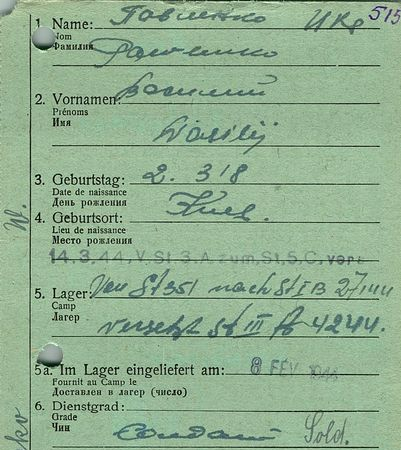 515
1. Name: Павленко Ukr
Nom
Фамилия
2. Vornamen: Василий
Prénoms
Имя
Wasilij
3. Geburtstag: 2. 3 18
Date de naissance
День рождения
4. Geburtsort: Kiev.
Lieu de naissance
Место рождения
14.3.44, V. St. 3. A. zum. St. 5. C. vers
5. Lager: Von St 351 nach St I B 27 I 44
Camp
Лагер
versetzt St III A 4244.
5a. Im Lager eingeliefert am: 8 FEV. 1944
Fournit au Camp le
Доставлен в лагер (число)
6. Dienstgrad:
Grade
Чин
Солдат Sold.